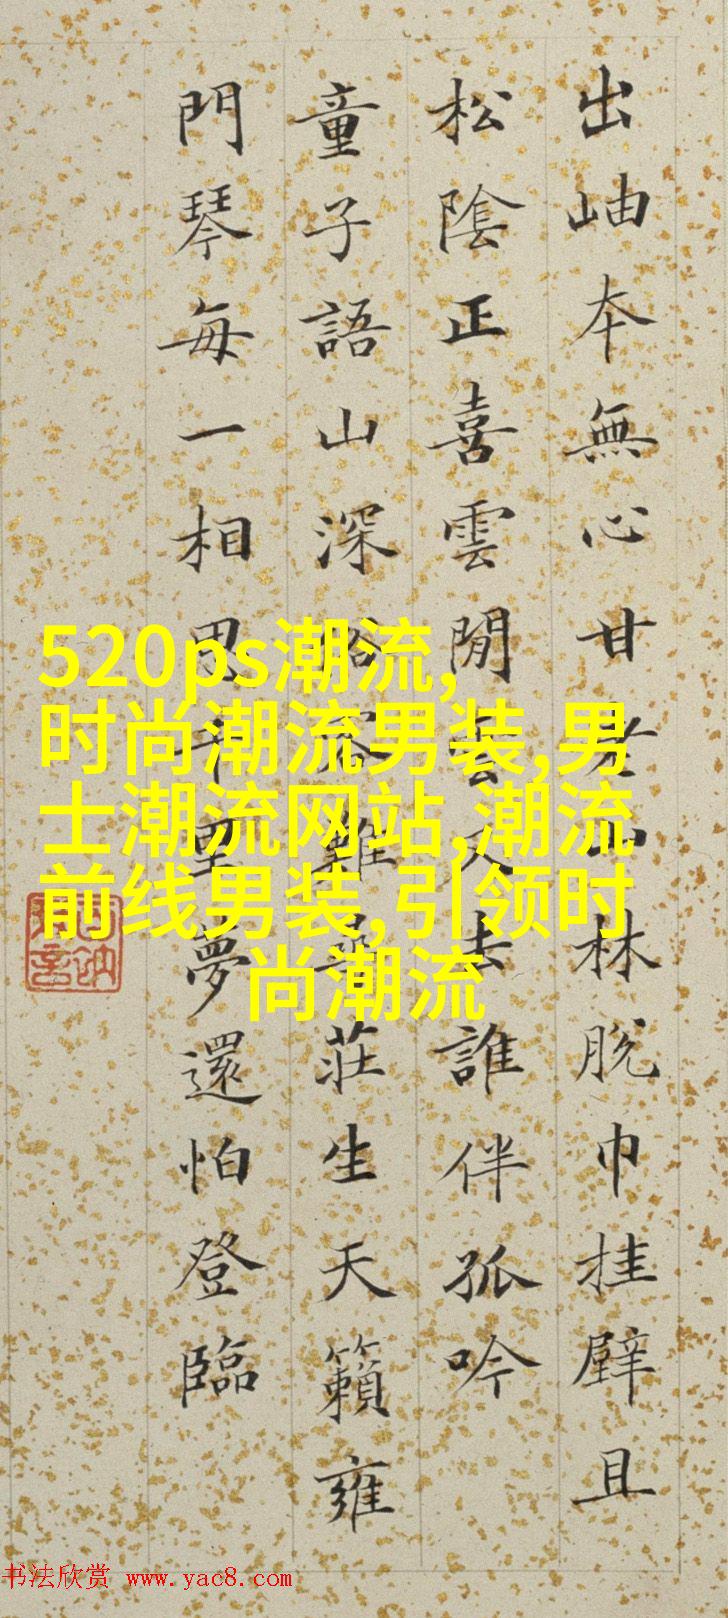 出岫本無心甘老山林脫巾挂壁且
松陰正喜雲閒雲又去誰伴孤吟
童子語山深難尋莊生天籟雍
門琴每一相思千里夢還怕登臨
520ps潮流,
时尚潮流男装,男
士潮流网站,潮流
前线男装,引领时
尚潮流
书法欣赏 www.yac8.com